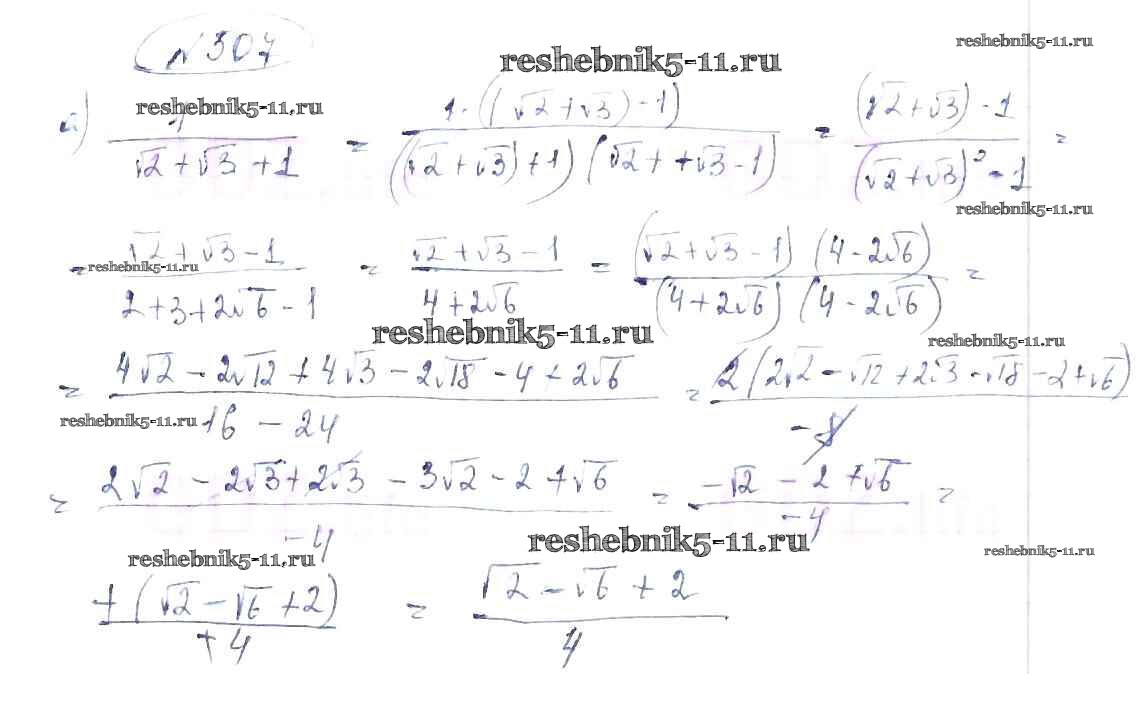 № 307
reshebnik5-11.ru
reshebnik5-11.ru
reshebnik5-11.ru
а) 1/(√2 + √3 + 1) = 1·((√2 + √3) - 1)/(((√2 + √3) + 1)(√2 + + √3 - 1)) = ((√2 + √3) - 1)/((√2 + √3)² - 1) =
reshebnik5-11.ru
= (√2 + √3 - 1)/(2 + 3 + 2√6 - 1) = (√2 + √3 - 1)/(4 + 2√6) = ((√2 + √3 - 1)(4 - 2√6))/((4 + 2√6)(4 - 2√6)) =
reshebnik5-11.ru
reshebnik5-11.ru
reshebnik5-11.ru
= (4√2 - 2√12 + 4√3 - 2√18 - 4 + 2√6)/(16 - 24) = 2(2√2 - √12 + 2√3 - √18 - 2 + √6)/(-8)
reshebnik5-11.ru
= (2√2 - 2√3 + 2√3 - 3√2 - 2 + √6)/(-4) = (-√2 - 2 + √6)/(-4) =
reshebnik5-11.ru
reshebnik5-11.ru
reshebnik5-11.ru
+(√2 - √6 + 2)/(+4) = (√2 - √6 + 2)/4